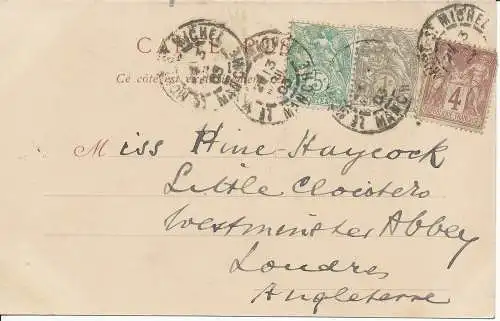 CARTE POSTALE
Ce côté est
MONT-ST-MICHEL
MANCHE
5
4
Miss Hine-Haycock
Little Cloisters
Westminster Abbey
Londres
Angleterre